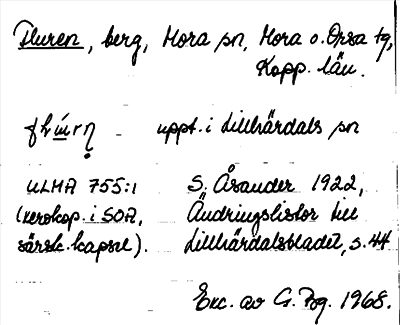 Fluren, berg, Mora sn, Mora o. Orsa tg,
Kopp. län.
uppt. i Lillhärdals sn
ULMA 755:1 S. Åsander 1922,
(xerokop. i SOA, Ändringslistor till
särsk. kapsel). Lillhärdalsbladet, s. 44
Exc. av G. Pg. 1968.